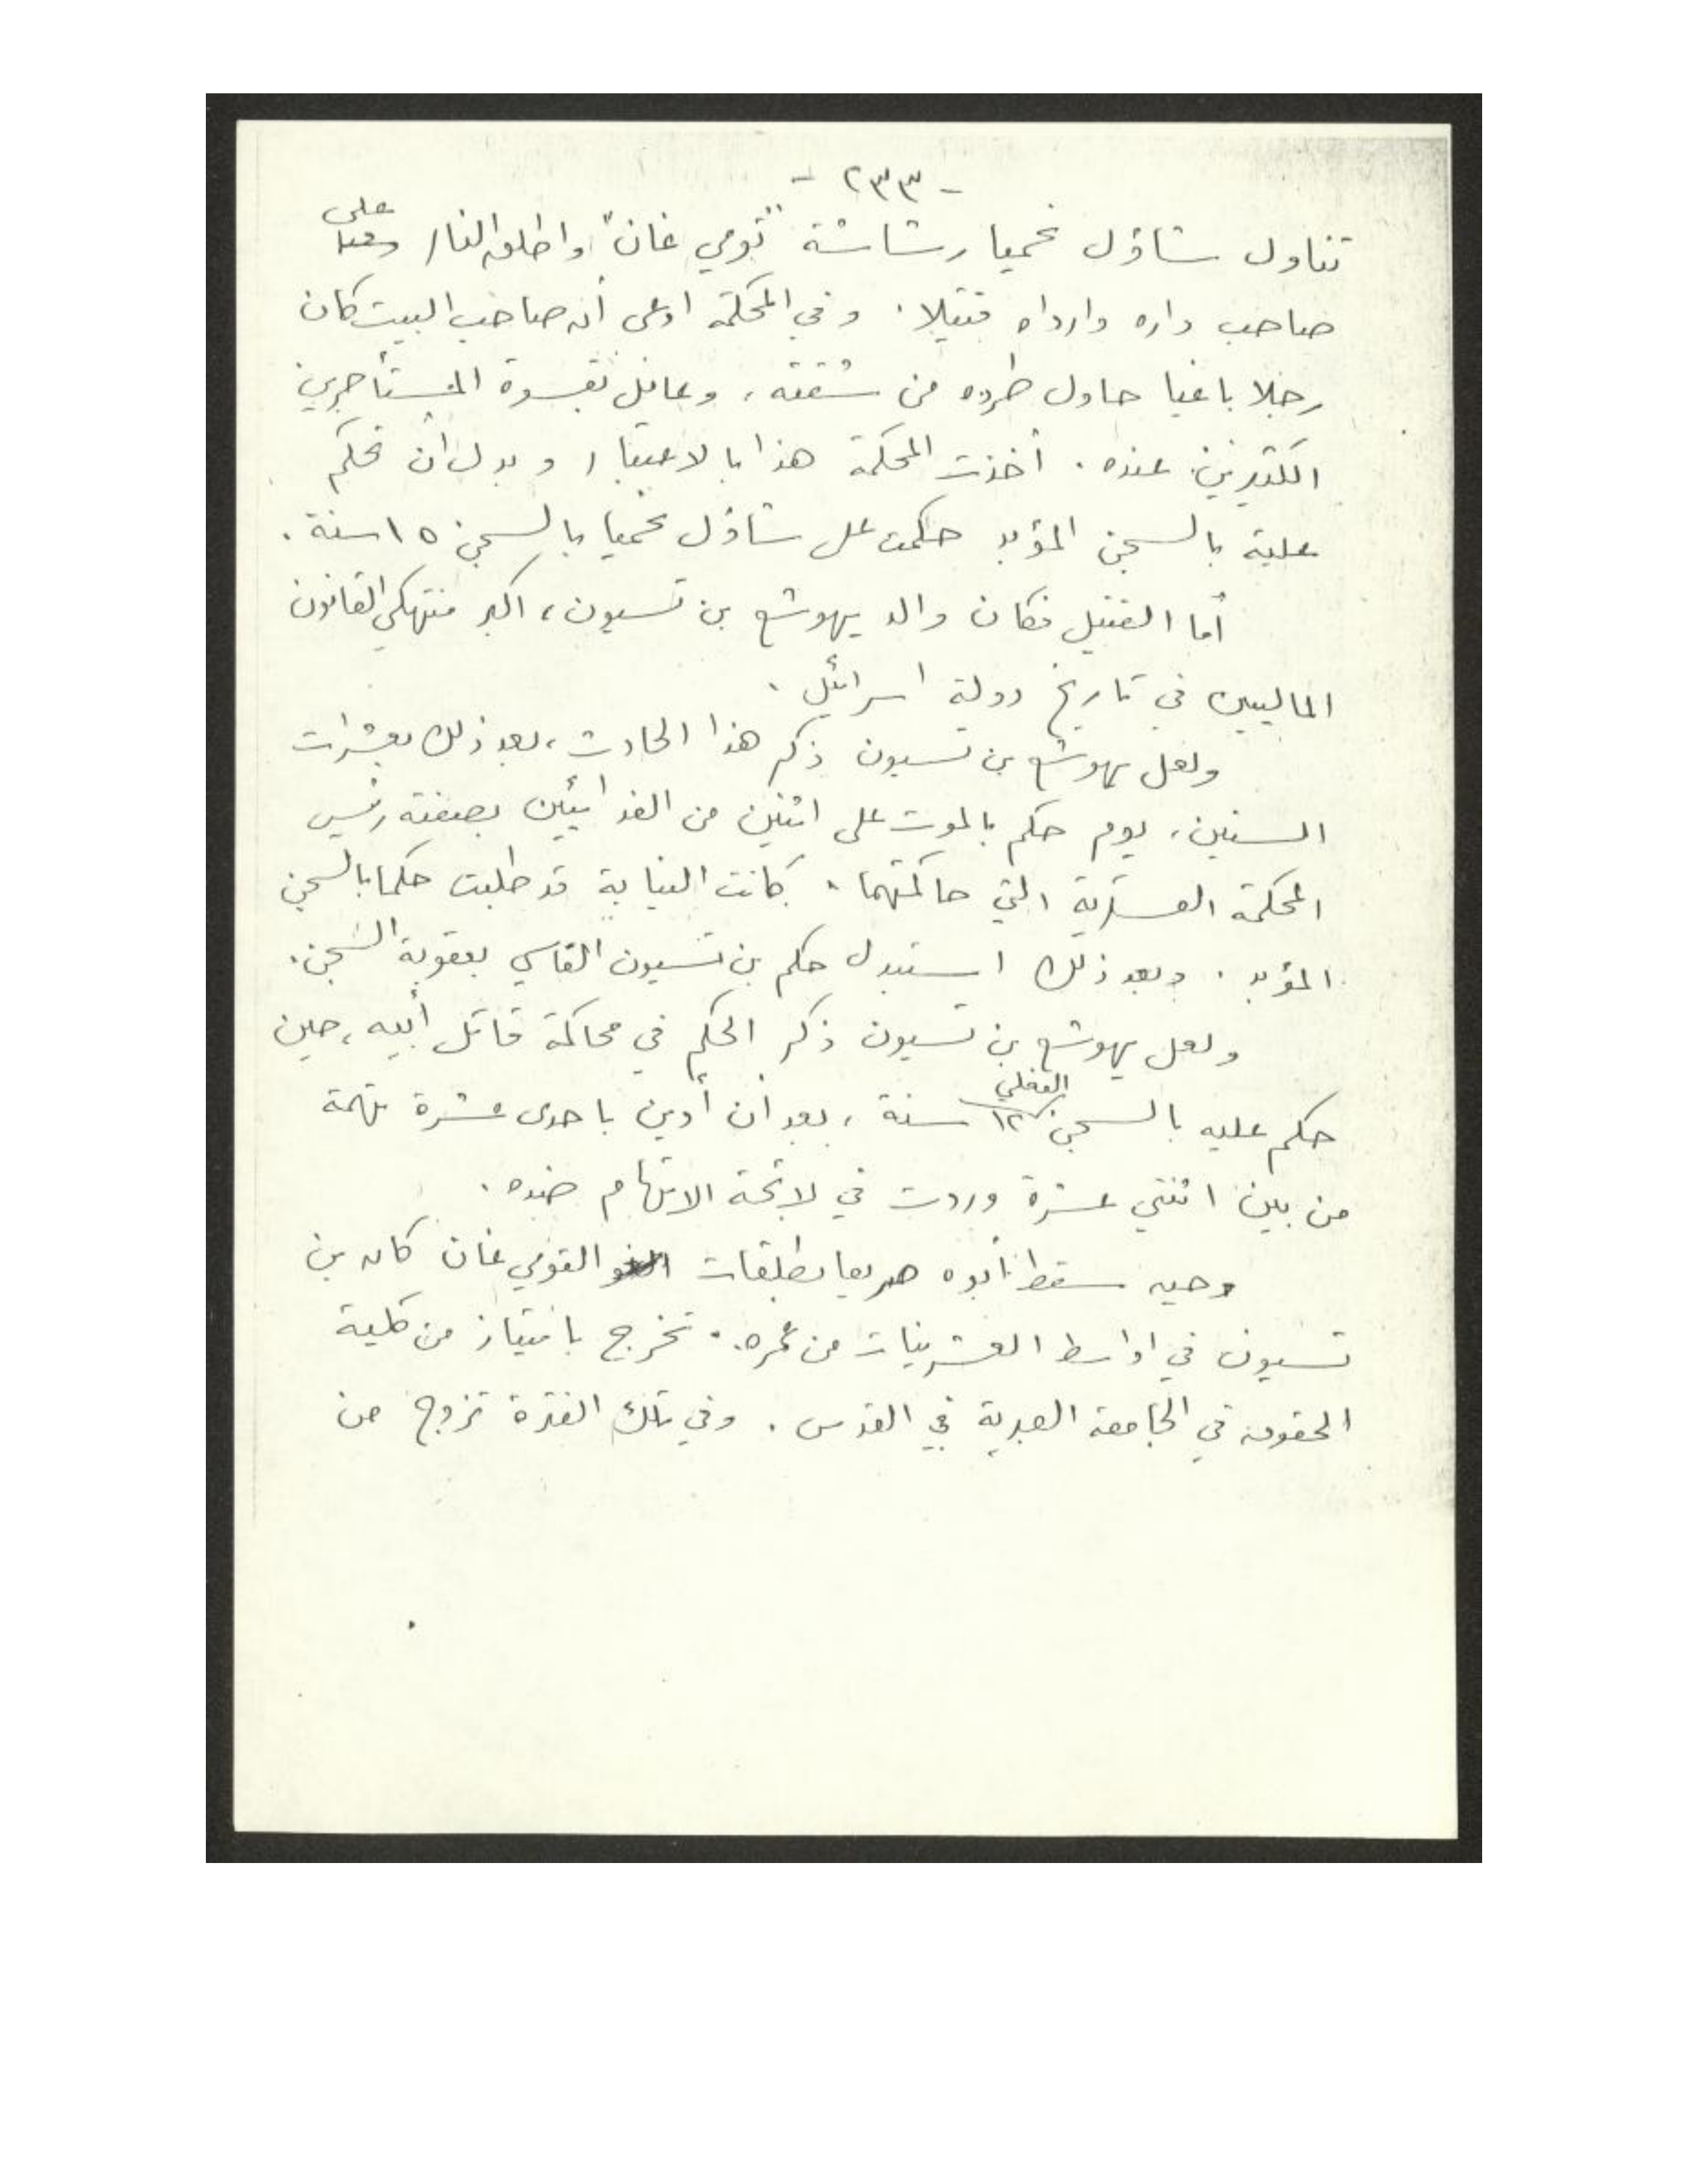 - ٢٣٣ -
تناول شاؤل نحميا رشاشة "تومي غان" واطلق النار على
صاحب داره وارداه قتيلا. وفي المحكمة ادعى أن صاحب البيت كان
رجلا باغيا حاول طرده من شقته، وعامل بقسوة المستأجرين
الكثيرين عنده. أخذت المحكمة هذا بالاعتبار وبدل أن تحكم
عليه بالسجن المؤبد حكمت على شاؤل نحميا بالسجن ١٥ سنة.
أما القتيل فكان والد يهوشع بن تسيون، اكبر منتهكي القانون
الماليين في تاريخ دولة اسرائيل.
ولعل يهوشع بن تسيون ذكر هذا الحادث، بعد ذلك بعشرات
السنين، يوم حكم بالموت على اثنين من الفدائيين بصفته رئيس
المحكمة العسكرية التي حاكمتهما. كانت النيابة قد طلبت حكما بالسجن
المؤبد. وبعد ذلك استبدل حكم بن تسيون القاسي بعقوبة السجن.
ولعل يهوشع بن تسيون ذكر الحكم في محاكمة قاتل أبيه، حين
حكم عليه بالسجن الفعلي ١٢ سنة، بعد أن أدين باحدى عشرة تهمة
من بين اثنتي عشرة وردت في لائحة الاتهام ضده.
وحين سقط أبوه صريعا بطلقات التومي غان كان بن
تسيون في اواسط العشرينات من عمره. تخرج بامتياز من كلية
الحقوق في الجامعة العبرية في القدس. وفي تلك الفترة تزوج من